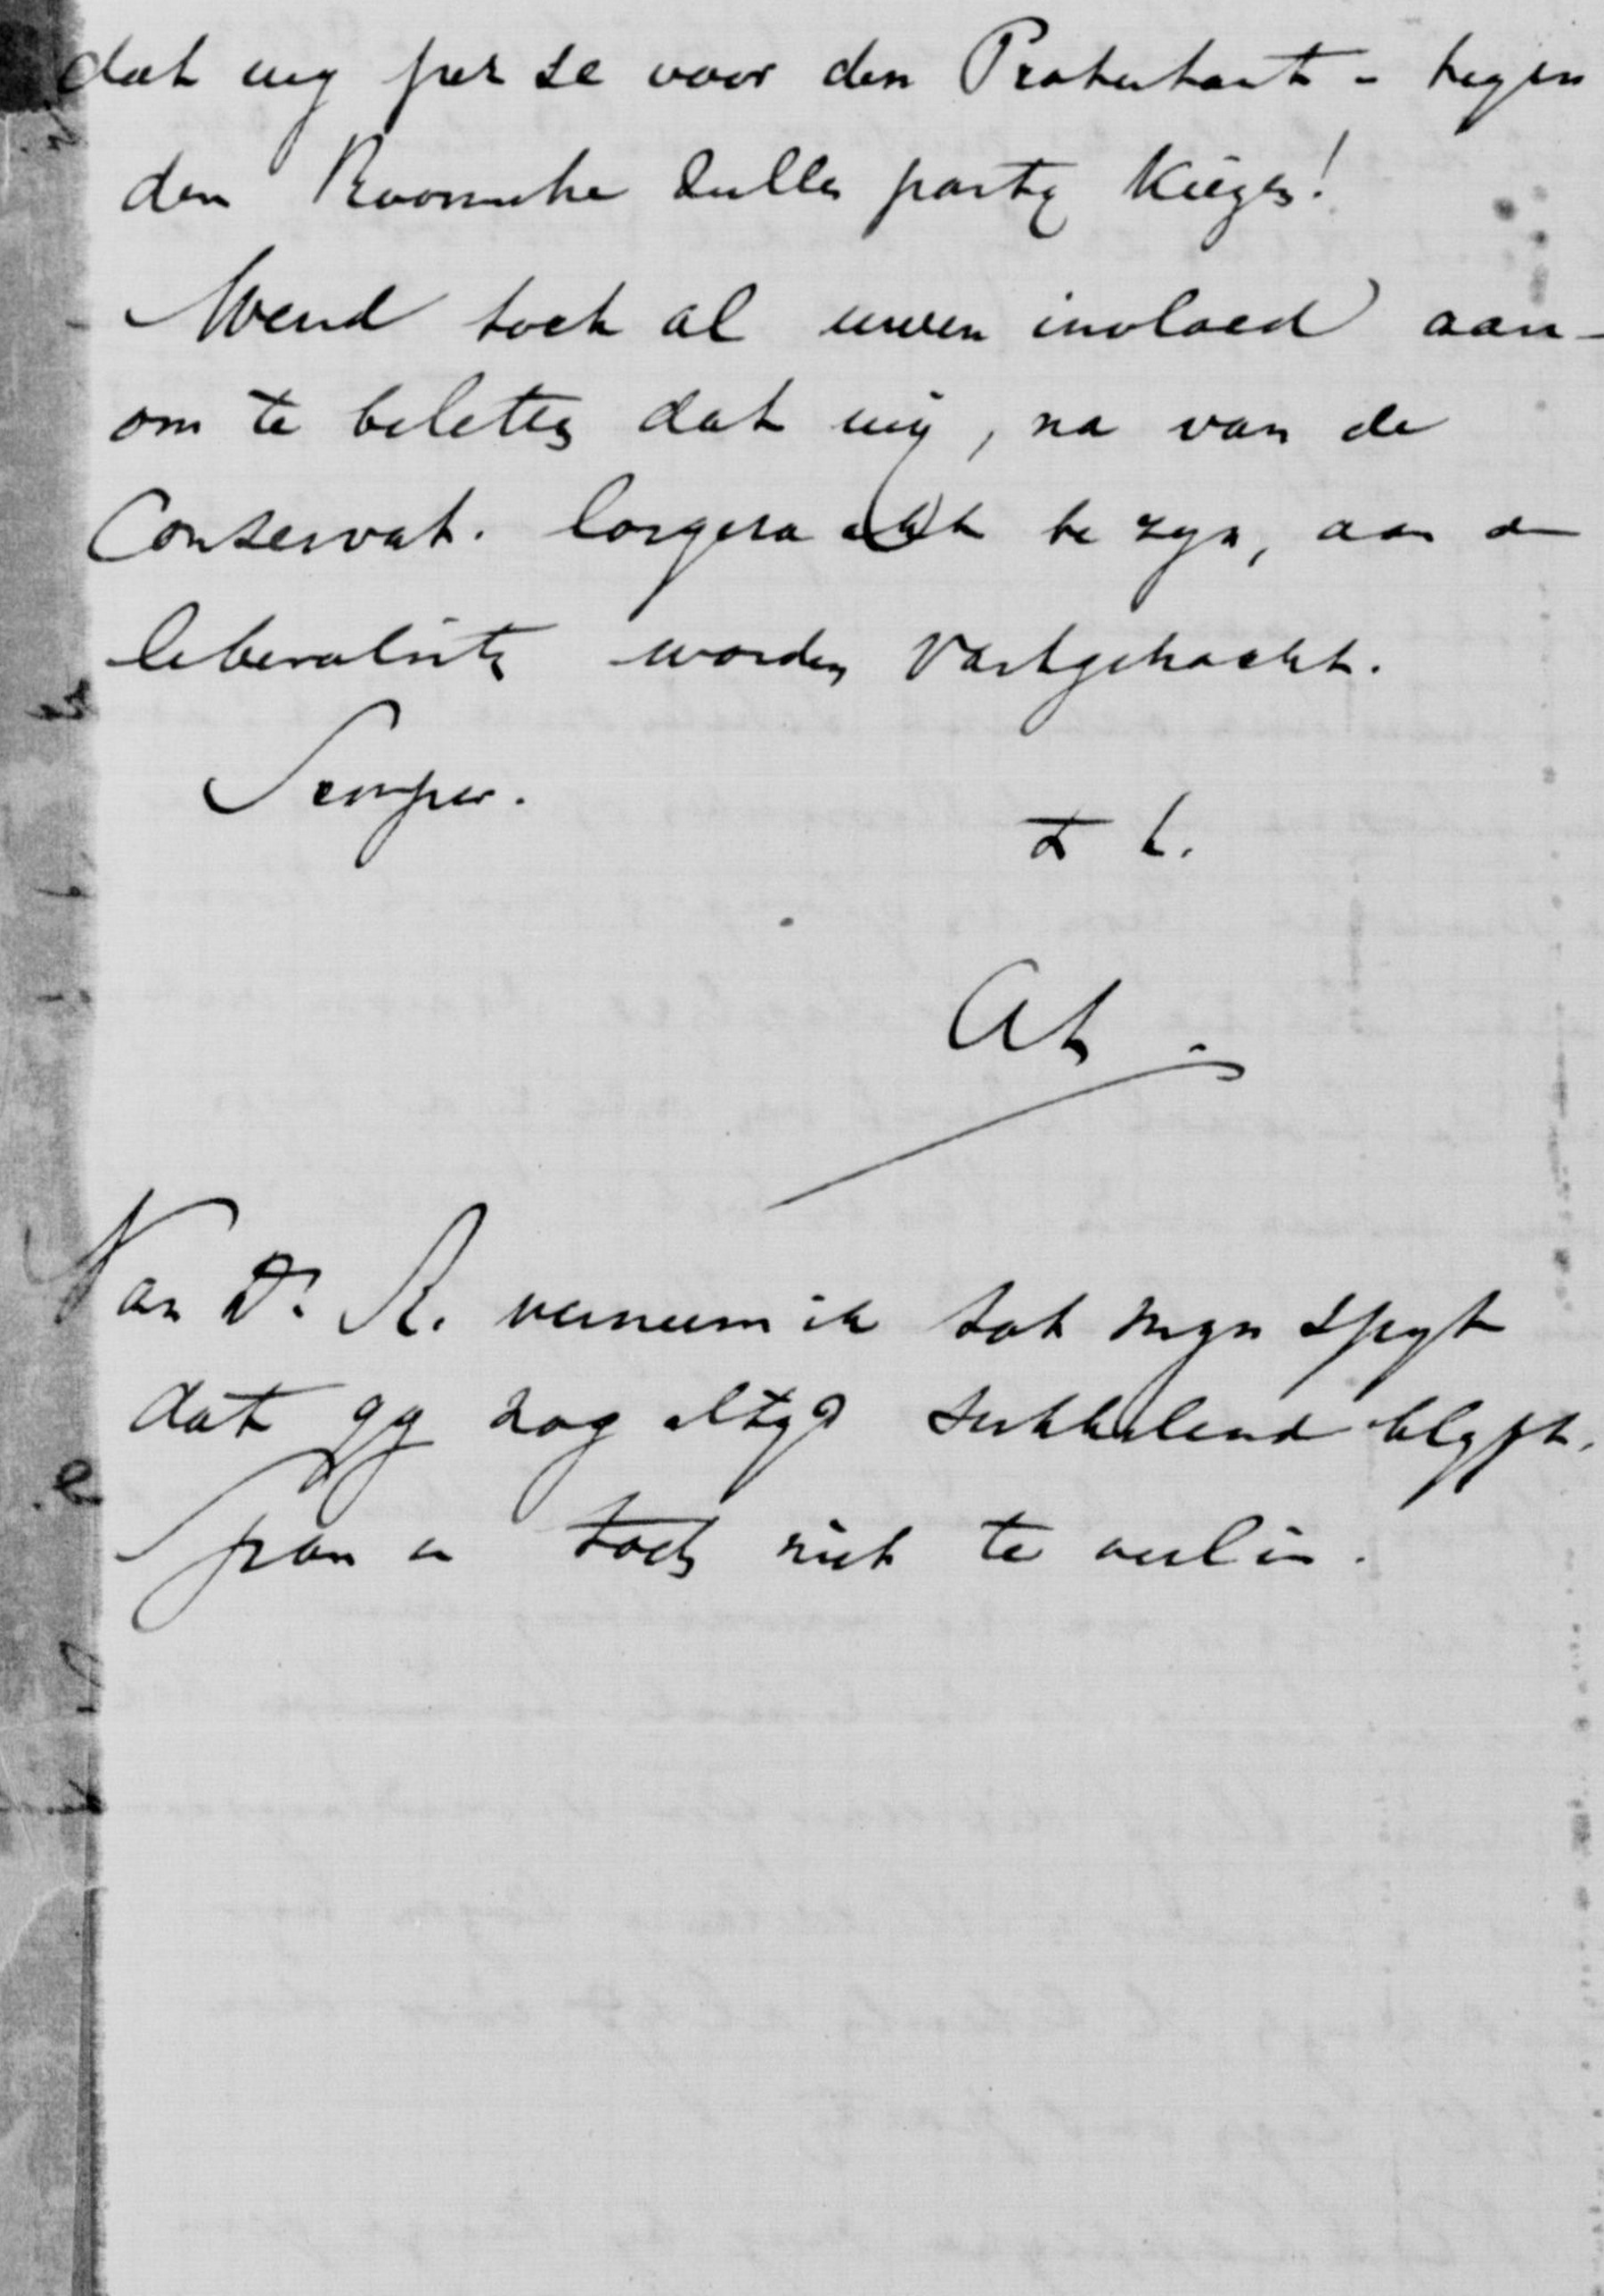 dat wij per se voor den Protestant - tegen
den Roomsche zullen party kiezen!
Wend toch al uwen invloed aan -
om te beletten dat wij, na van de
Conservat. losgeraakt te zyn, aan de
liberalisten worden vastgehaakt.
Semper.
t t.
AK
Van Dr. R. verneem ik tot myn spyt
dat gy nog altyd sukkelend blyft.
Span u toch niet te veel in.